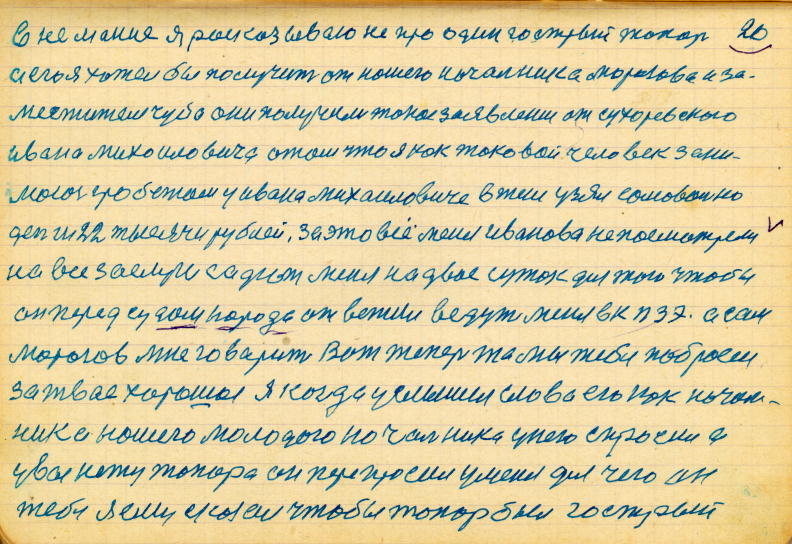 В не мание я расказываю не про один гострый топор 20
аего я хотел бы получить от нашего начальника морозова и за-
местителя чуба они получили такое заявлении от сухоревского
ивана михаиловича о том что я как таковой человек зани-
мался грабежом у ивана михаиловича взял узял самовольно
деньги 22 тысячи рублей, за это всё меня иванова непосмотрели
на все заслуги садют меня на двое суток для того чтобы
он перед судом народа от ветил ведут меня в к п 37. а сам
морозов мне говарит Вот теперь та мы тебя поброем
за твае хорошая я когда услышел слова его как началь-
ника нашего молодого началника у него спросил а
у вас нету топора он перепросил у меня для чего он
тебе я ему сказал чтобы топор был гострый